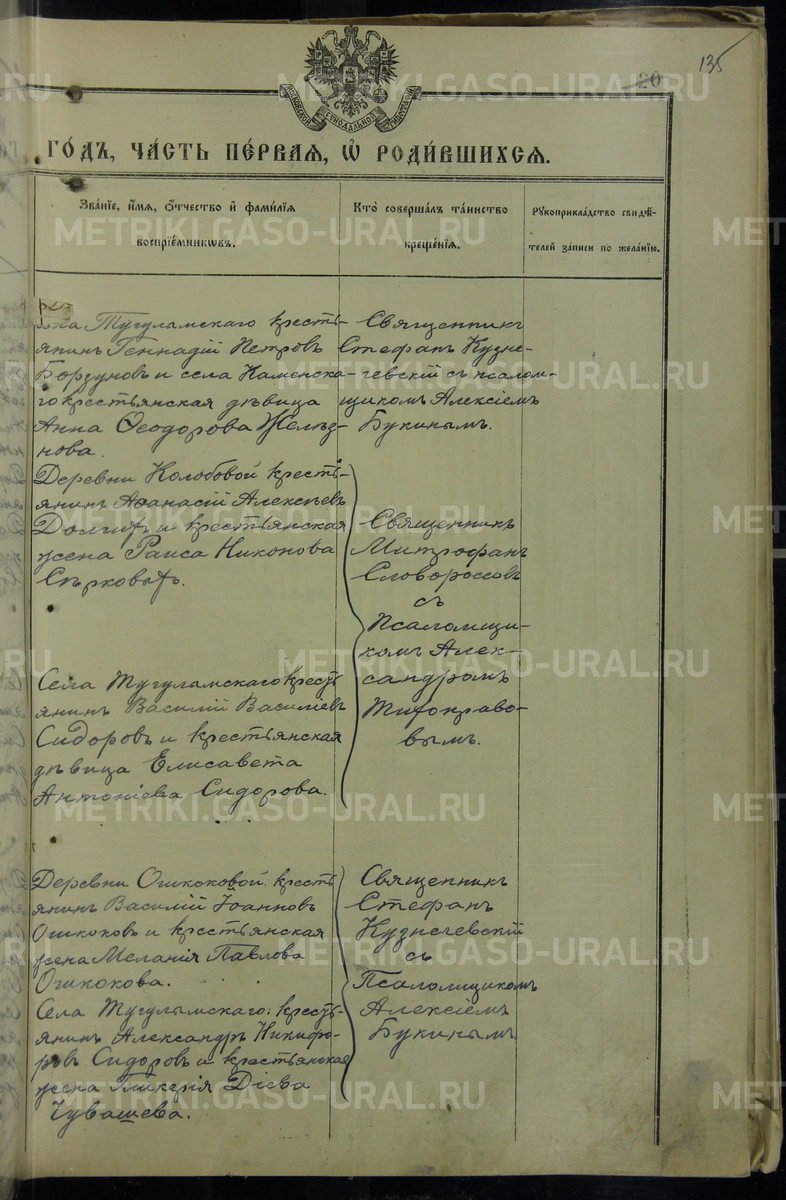 135
20
МОСКОВСКОЙ СѴНОДАЛЬНОЙ ТИПОГРАФІИ
ГО́ДЪ, ЧА́СТЬ ПЕ́РВАѦ, Ѡ҆ РОДИ́ВШИХСѦ.
Зва́нїе, и҆́мѧ, ѻ҆́тчество и҆ фами́лїѧ
воспрїе́мникѡвъ.
Кто̀ соверша́лъ та́инство
креще́нїѧ.
Рꙋкоприкла́дство свидѣ́-
телей за́писи по жела́нїю.
Тугуламскаго кресть-
янинъ Геннадій Петровъ
Борзуновъ и села Каменска-
го крестьянская дѣвица
Анна Ѳеодорова Желѣз-
нова.
Священникъ
Стефанъ Кузне-
чевскій съ псалом-
щикомъ Алексіемъ
Букинымъ.
Деревни Колобовой кресть-
янинъ Аѳанасій Алексѣевъ
Долгихъ и крестьянская
жена Раиса Никонова
Сѣрковыхъ.
Села Тугуламскаго кресть-
янинъ Василій Васильевъ
Сидоровъ и крестьянская
дѣвица Елисавета
Антоніева Сидорова.
Священникъ
Митрофанъ
Словороссовъ
съ
Псаломщи-
комъ Алек-
сандромъ
вымъ.
Деревни Ошкоковой кресть-
янинъ Василій Іоанновъ
Ошкоковъ и крестьянская
жена Меланія Павлова
Ошкокова.
Села Тугулымскаго кресть-
янинъ Александръ Никифо-
ровъ Сидоровъ и крестьянская
жена Гликерія Діева
Чувашева.
Священникъ
Стефанъ
Кузнечевскій
съ
Псаломщикомъ
Алексіемъ
Букинымъ
METRIKI.GASO-URAL.RU